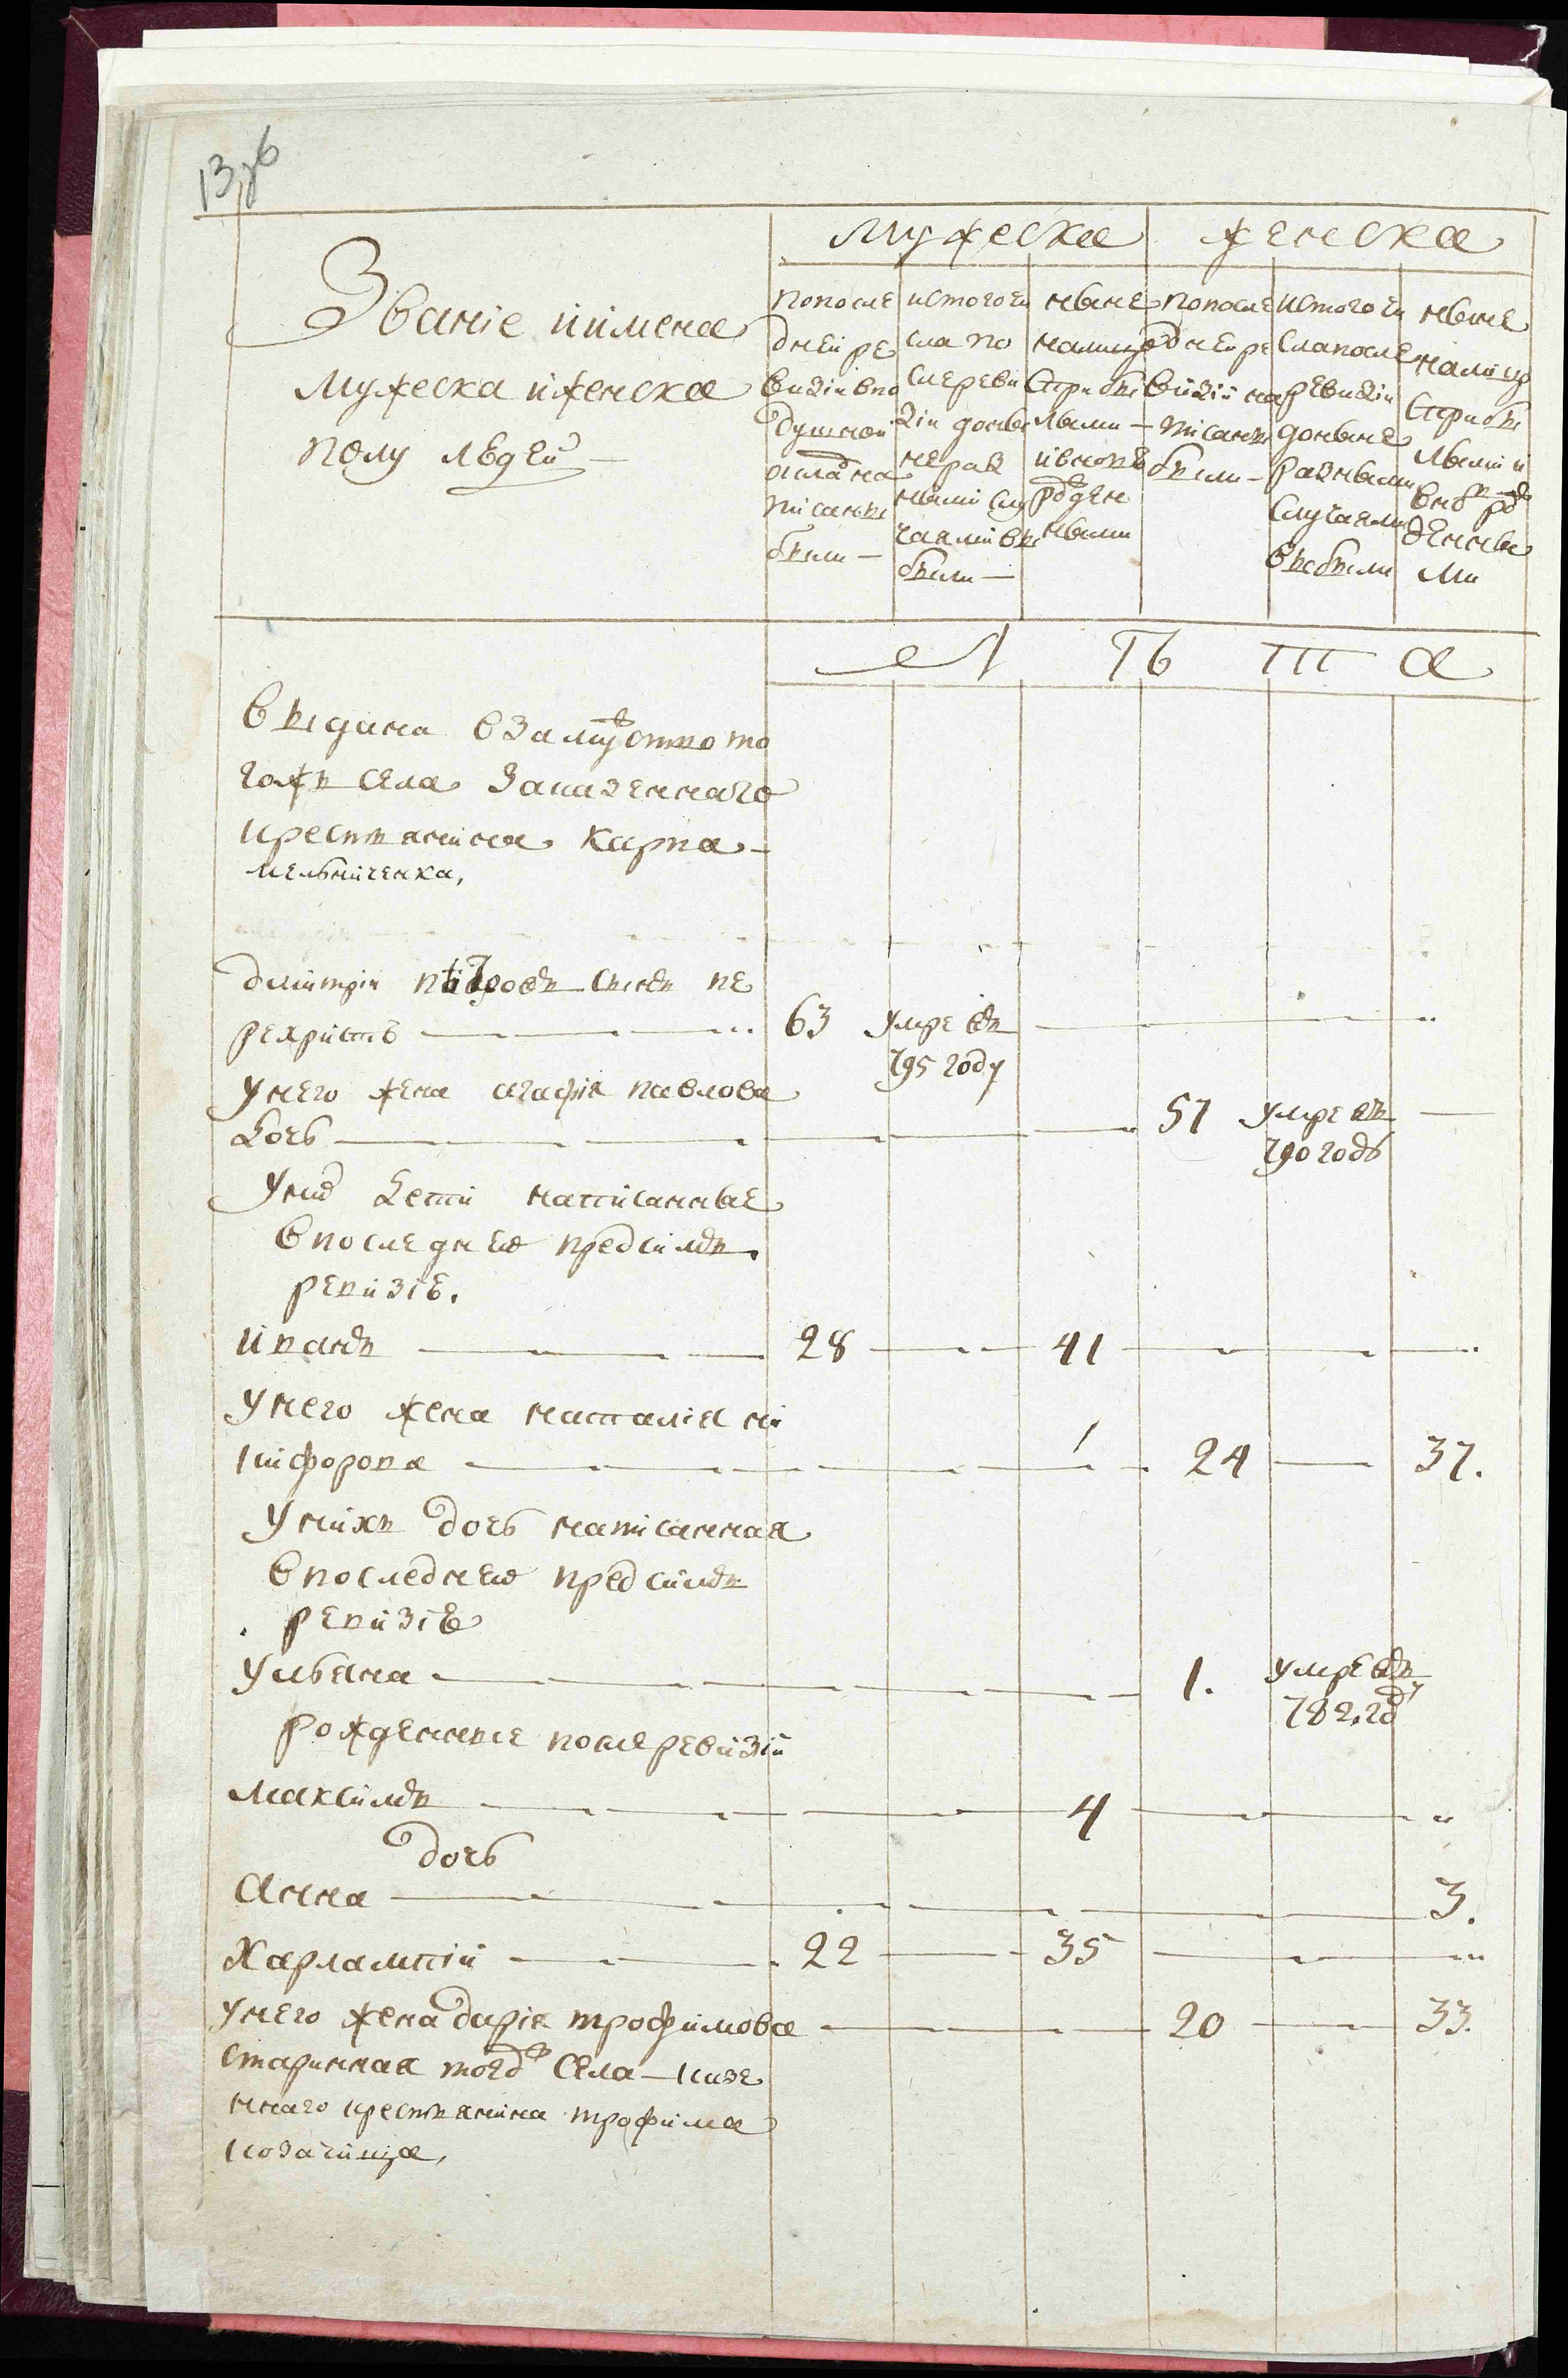 13зб
мужеска женска
Званіе иимена
мужеска иженска
полу людей
попосле
дней ре
визіивпо
душной
окла на
писаны
были
истогочи
сла по
слереви
зіи донын
нераз
ными слу
чаямивы
были
ныне
налицо
Стрибы
лыми
ивновь
рожден
ными
попосле
дней ре
визіи на
писаны
были
истого чи
слапосле
ревизіи
доныне
разными
Случаями
выбыли
ныне
налицо
Стрибы
лыми и
вновъ ро
жденны
ми
лѣта
выдана взамужство то
гожъ села Заказенного
крестьянина карпа
мельниченка,
дмитрій петровъ сынъ пе
рехристъ 63 умре въ
795 году
унего жена агафія павлова
дочь 57 умре въ
790 годъ
уних дети написанные
впоследнею предсимъ
ревизіе.
иванъ 28 41
унего жена наталія ни
кифорова 24 37.
унихъ дочь написанная
впоследнею предсимъ
ревизіе
ульяна 1. умре въ
782. году
рожденные после ревизіи
максимъ 4
дочь
Анна 3.
Харлампій 22 35
унего жена дарія трофимова 20 33.
старинная тогож Села казе
нного крестьянина трофима
козачинца,